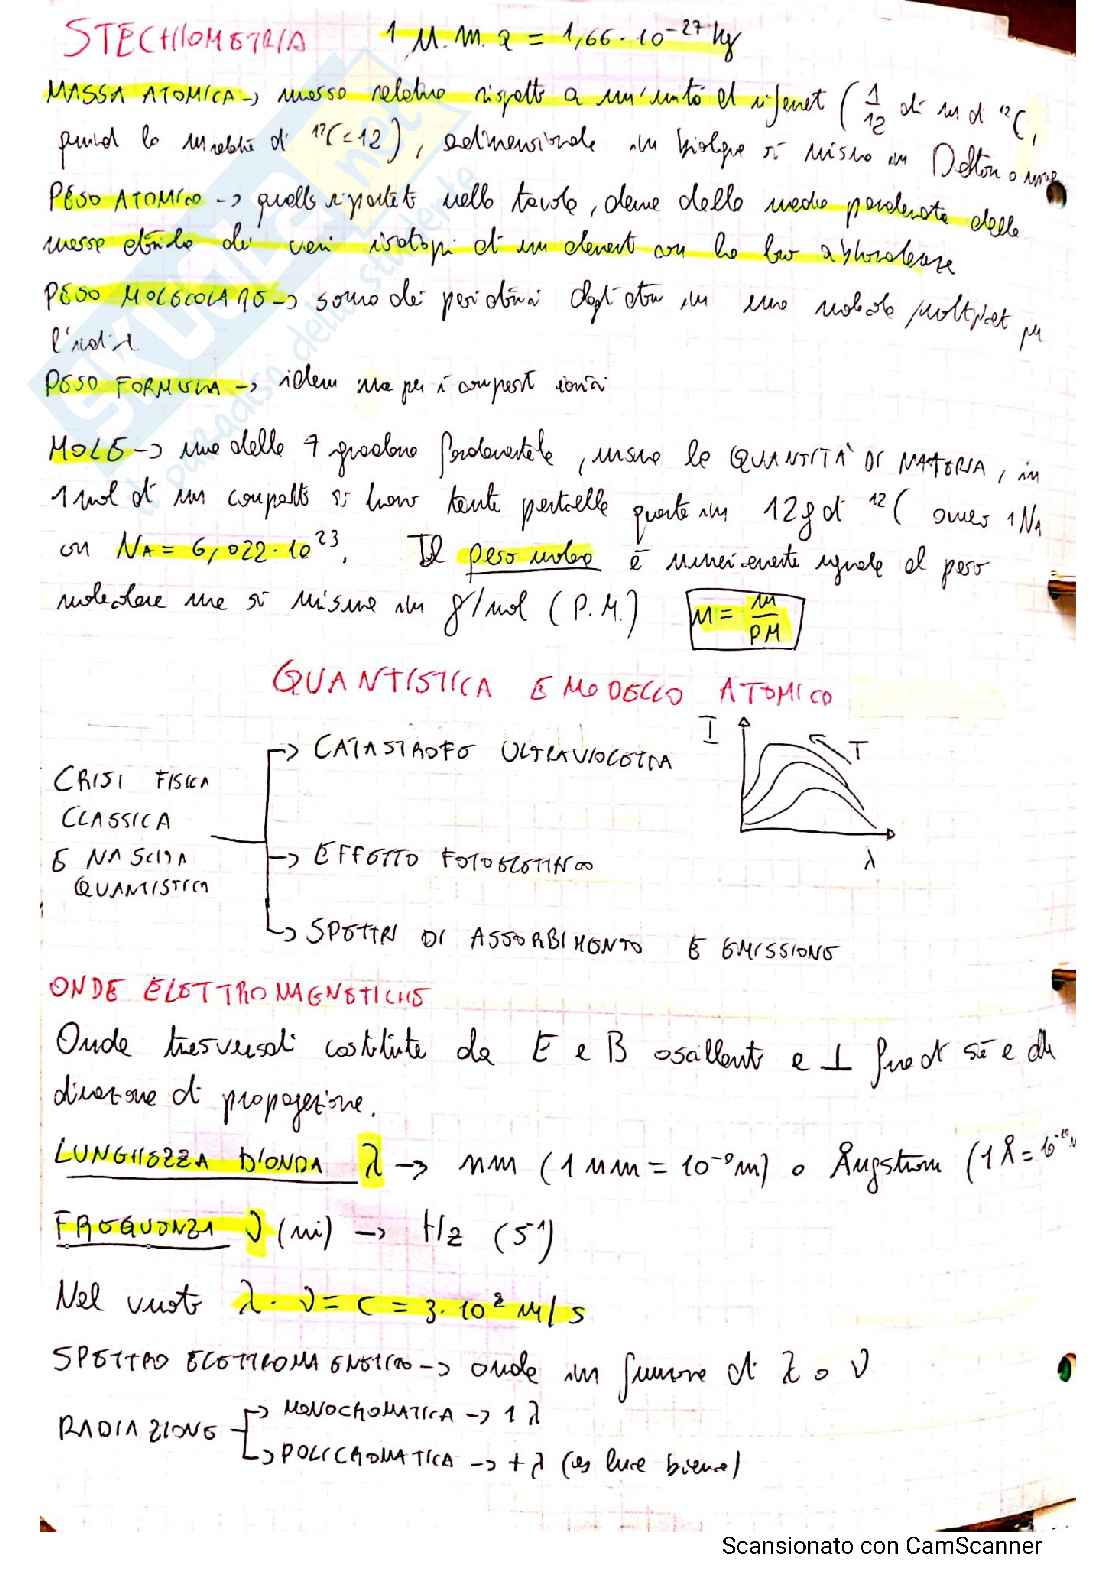 STECHIOMETRIA 1 U.M.A = 1,66·10⁻²⁷ kg
MASSA ATOMICA → massa relativa rispetto a un'unità di riferiment (1/12 di m di ¹²C,
quindi la massa di ¹²C=12), adimensionale in biologia si misura in Dalton o uma
PESO ATOMICO → quello riportato nella tavola, deriva dalla media ponderata delle
masse atomiche dei vari isotopi di un element con la loro abbondanza
PESO MOLECOLARE → somma dei pesi atomici degli atomi in una molecola moltiplicat per
l'indice
PESO FORMULA → idem ma per i composti ionici
MOLE → una delle 7 grandezze fondamentale, misura la QUANTITÀ DI MATERIA, in
1 mol di un composto si hanno tante particelle quante in 12g di ¹²C ovvero 1 NA
con NA = 6,022·10²³. Il peso molare è numericamente uguale al peso
molecolare ma si misura in g/mol (P.M.) n = m/PM
QUANTISTICA E MODELLO ATOMICO
CRISI FISICA
CLASSICA
E NASCITA
QUANTISTICA
→ CATASTROFE ULTRAVIOLETTA
I T
λ
→ EFFETTO FOTOELETTRICO
→ SPETTRI DI ASSORBIMENTO E EMISSIONE
ONDE ELETTROMAGNETICHE
Onde trasversali costituite da E e B oscillanti e ⊥ fra di sé e alla
direzione di propagazione.
LUNGHEZZA D'ONDA λ → nm (1 nm = 10⁻⁹m) o Ångstrom (1Å = 10⁻¹⁰m
FREQUENZA ν (ni) → Hz (s⁻¹)
Nel vuoto λ·ν = c = 3·10⁸ m/s
SPETTRO ELETTROMAGNETICO → onde in funzione di λ o ν
RADIAZIONE → MONOCROMATICA → 1 λ
→ POLICROMATICA → + λ (es luce bianca)
SKUOLA.net
il paradiso dello studente
Scansionato con CamScanner